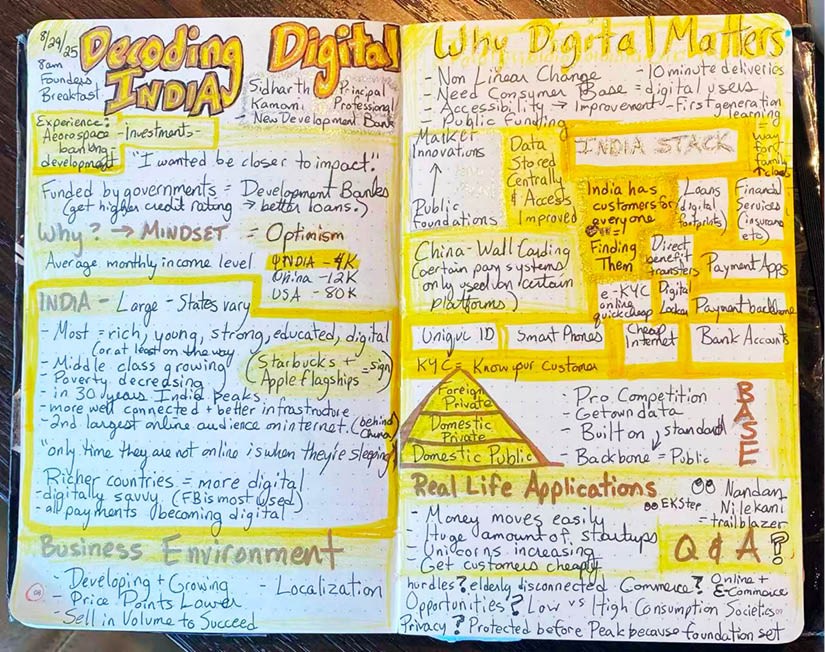 8/29/25
8am
Founders
Breakfast
Decoding Digital
INDIA
Sidharth Kamani
Principal Professional
- New Development Bank
Experience:
Aerospace
banking
development
- investments -
"I wanted to be closer to impact".
Funded by governments = Development Banks
(get higher credit rating → better loans.)
Why? → MINDSET = Optimism
Average monthly income level
INDIA - 4K
China - 12K
USA - 80K
INDIA - Large - States vary
- Most = rich, young, strong, educated, digital
(or at least on the way
- Middle class growing
(Starbucks + Apple flagships = sign)
- Poverty decreasing
- in 30 years India peaks.
- more well connected + better infrastructure
- 2nd largest online audience on internet. (behind China)
"only time they are not online is when they're sleeping
Richer countries = more digital
- digitally savvy (FB is most used)
- all payments becoming digital
Business Environment
- Developing + Growing
- Localization
- Price Points Lower
- Sell in Volume to Succeed
Why Digital Matters
- Non Linear Change
- 10 minute deliveries
- Need Consumer Base = digital users
- Accessibility → Improvement
- First generation learning =
way for family
- Public Funding
Market Innovations
↑
Public foundations
Data Stored Centrally & Access Improved
INDIA STACK
India has customers for everyone
=
Finding Them
Loans
digital
footprints)
Financial
Services
(insurance
etc)
China - Wall Garding
(certain pay systems
only used on certain
platforms)
Direct
benefit
transfers
Payment Apps
e-KYC
online
quick cheap
Digital
Locker
Payment backbone
Unique ID
Smart Phones
Cheap
Internet
Bank Accounts
KYC = Know your Customer
Foreign
Private
Domestic
Private
Domestic Public
- Pro. Competition
- Get own data
- Built on standard
- Backbone = Public
BASE
Real Life Applications
- Money moves easily
- Huge amount of startups
- Unicorns increasing
- Get customers cheaply
Nandan
Nilekani
= trailblazer
EKStep
Q & A ?
hurdles? elderly disconnected Commerce? Online +
E-Commerce
Opportunities? Low vs High Consumption Societies
Privacy? Protected before Peak because foundation set